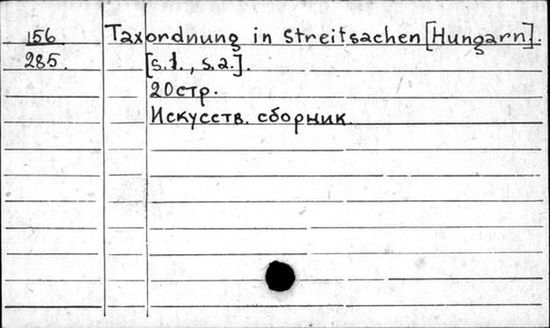 156 Taxordnung in Streitsachen [Hungarn].
285. [s.l., s.a.].
20стр.
Искусств. сборник.